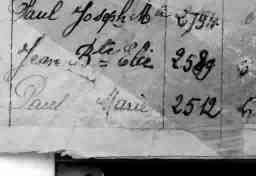 Paul Joseph M
Jean Bte Elie 2589
Paul Marie 2512